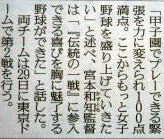 甲子園でプレーできる緊
張を力に変えられ100点
満点。ここからもっと女子
野球を盛り上げていきた
い」と述べ、宮本和知監督
は「『伝統の一戦』に参入
できる喜びを胸に魅する
野球ができた」と話した。
両チームは29日に東京ド
ームで第2戦を行う。